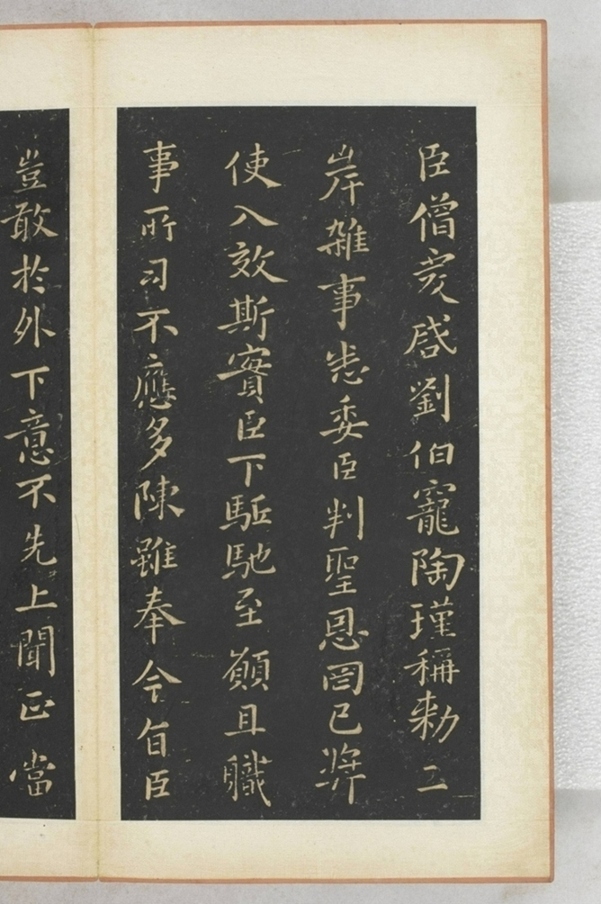 臣僧虔啓劉伯寵陶瑾稱勑二
岸雑事悉委臣判聖恩罔已奨
使入效斯實臣下駈馳至願且職
事所习不應多陳雖奉今旨臣
豈敢於外下意不先上聞正當